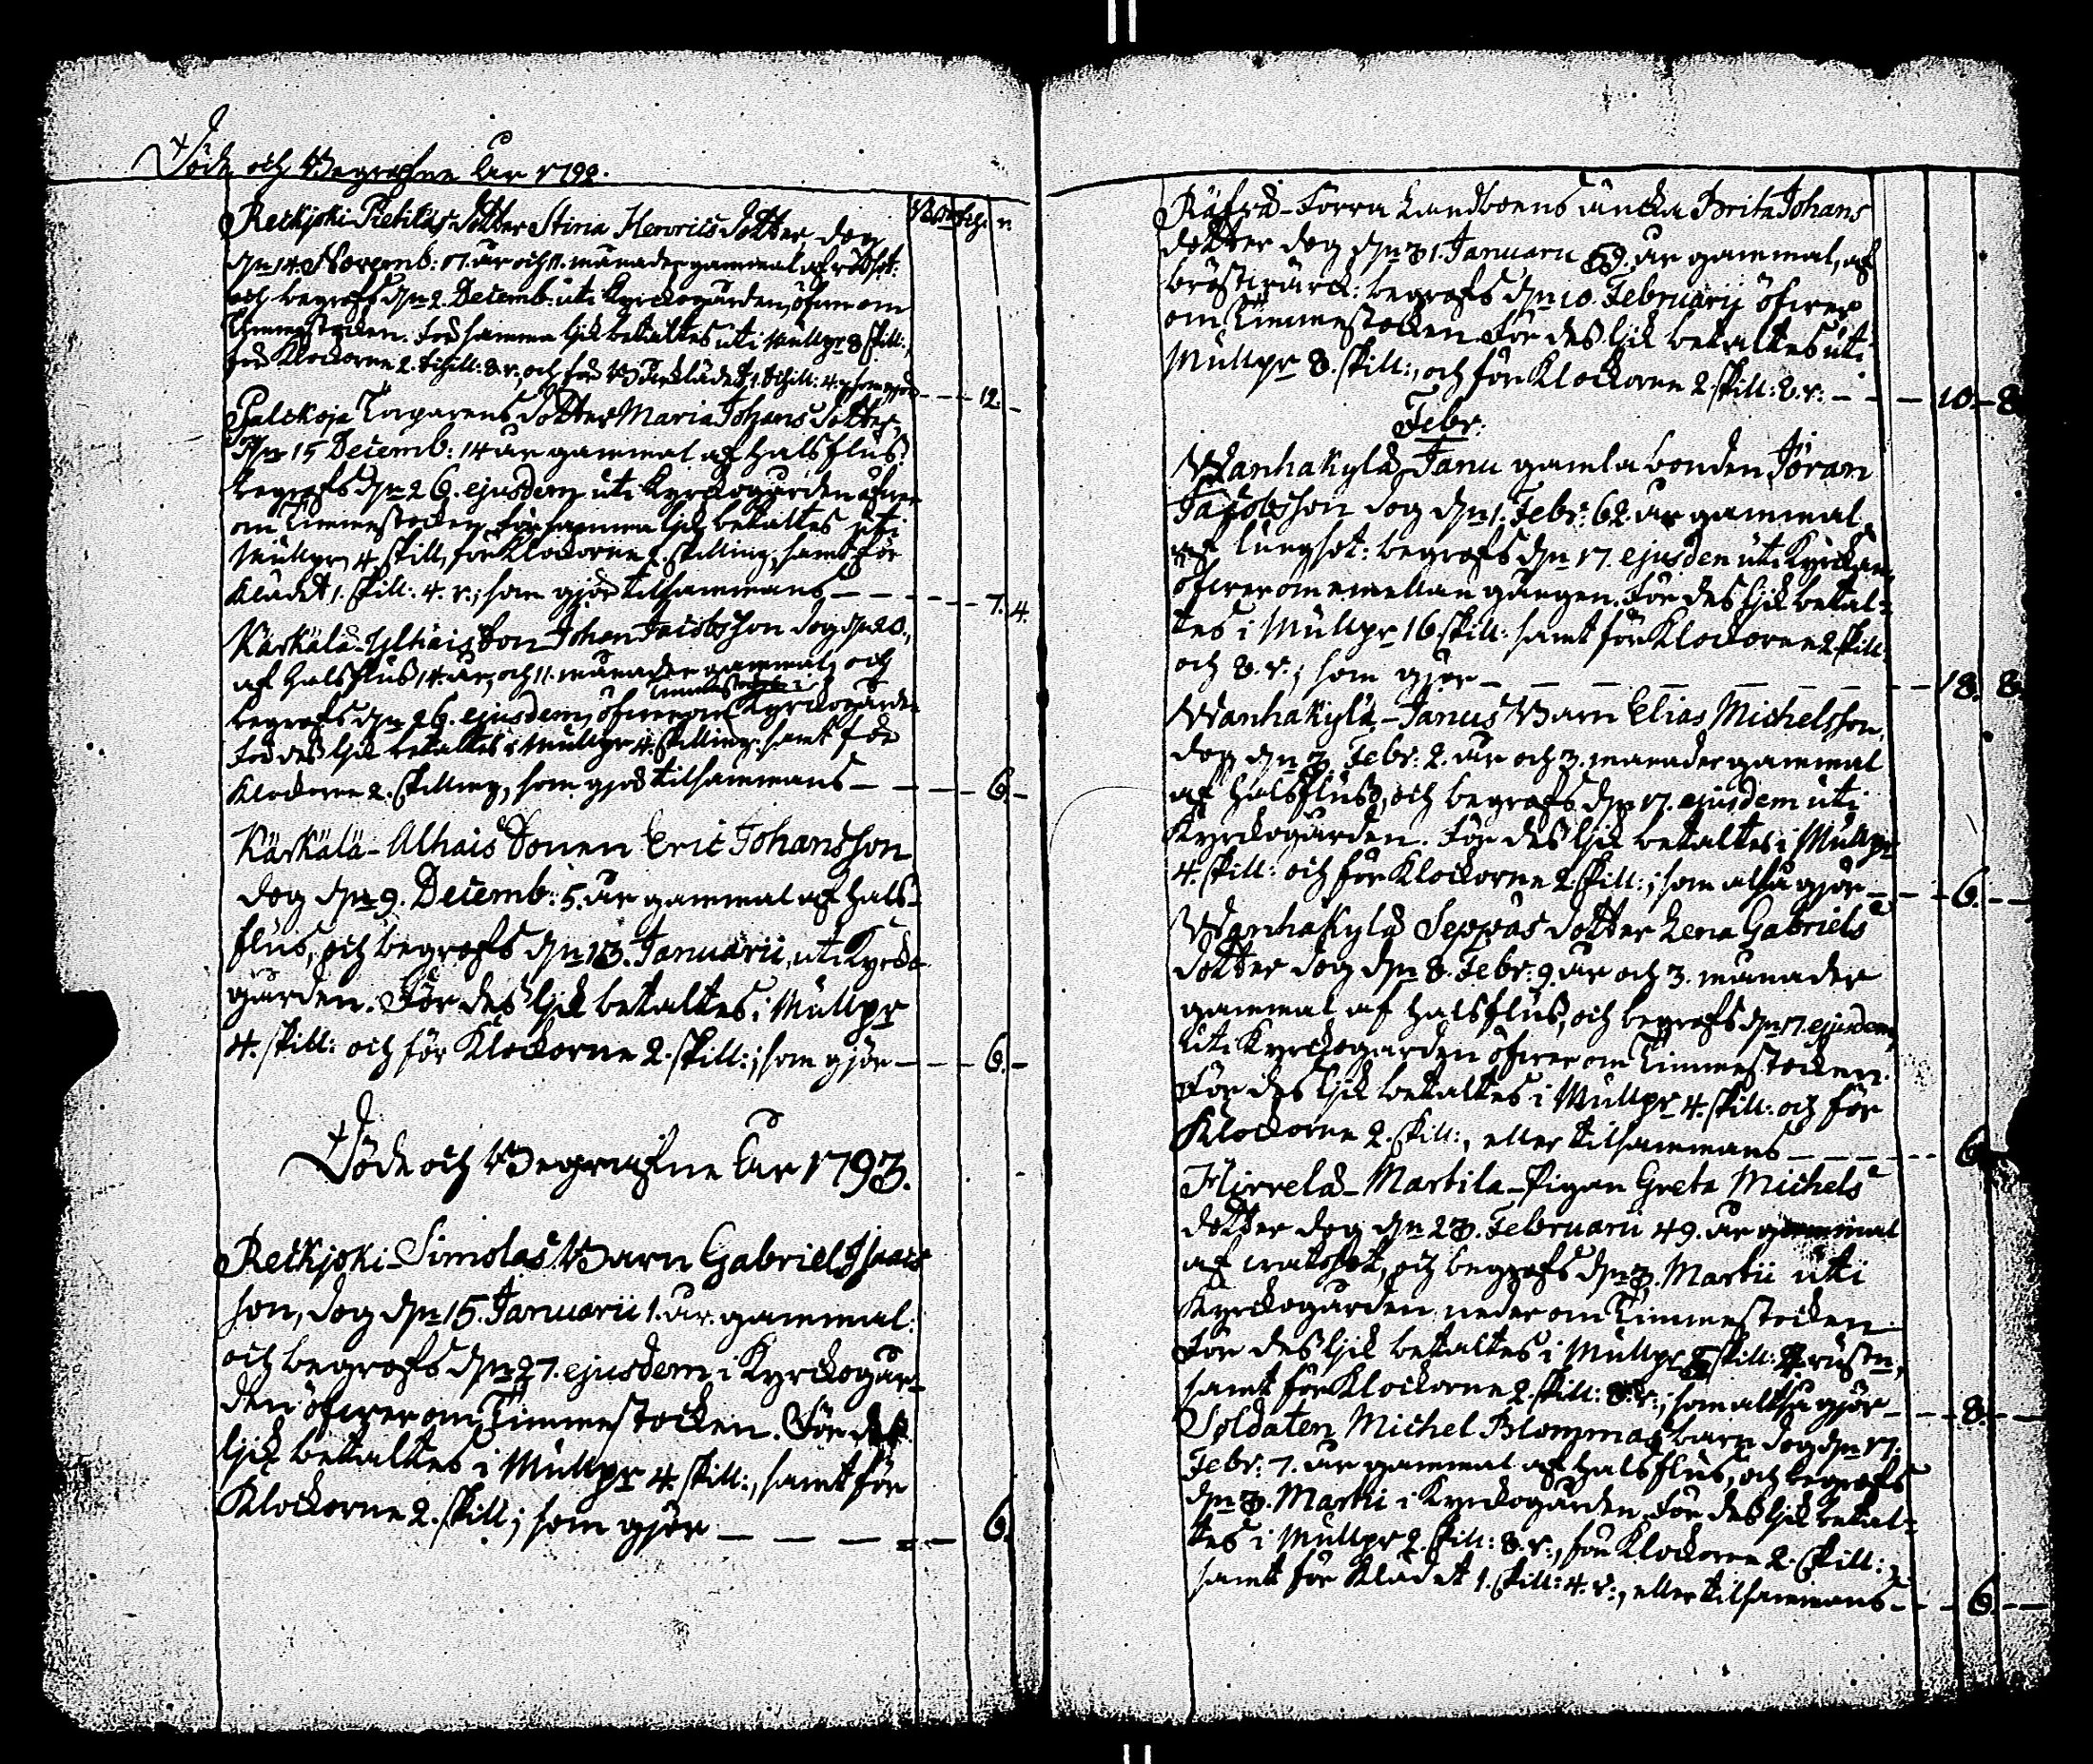 Döde och Begrafne åhr 1792.
Reckjoki Pietilas dotter Stina Henrics dotter, dog
dn 14. Novemb: 17. år och 11. månader gammal af rödsot:
och begrofs dn 2. Decemb: uti Kyrckogården, öfver om
Timmestocken. För samma lijk betaltes uti Mullpr 8 skill:,
för Klockorne 2. skill: 8. r., och för Bårklädet, 1. skill: 4. r, som gjör - - - 12. -
Palckoja Torparens dotter Maria Johans dotter,
dog dn 15 Decemb: 14 år gammal af halsfluss.
begrofs dn 26. ejusdem uti Kyrckogården öfver
om Timmestocken. För samma lijk betaltes uti
Mullpr 4. skill, för Klockorne 2. skilling, samt för
Klädet 1. skill: 4. r.; som gjör tilsammans - - - 7. 4.
Kärkälä-Ylhäis Son Johan Jacobsson dog dn 20.,
af halsfluss 14. år, och 11. månader gammal, och
begrofs dn 26. ejusdem, öfver om Timmestocken i Kyrckogården
För des lijk betaltes i Mullpr 4. skilling. samt för
Klockorne 2. skilling, som gjör tilsammans - - - 6. -
Käskälä-Alhais Sonen Eric Johansson
dog dn 9. Decemb: 5. år gammal af hals-
flus, och begrofs dn 13. Januarii, uti Kyrcko-
gården. För des lijk betaltes i Mullpr
4. skill: och för Klockorne 2. skill:; som gjör - - - 6. -
Döde och Begrafne åhr 1793.
Reckjoki-Simolas Barn Gabriel Isaacs
son, dog dn 15. Januarii 1. år. gammal:
och begrofs dn 27. ejusdem i Kyrckogår-
den öfver om Timmestocken. För des
lijk betaltes i Mullpr 4. skill:, samt för
Klockorne 2. skill; som gjör - - - 6.
Räfså-Forra Landboens äncka Brita Johans
dotter dog dn 31. Januarii 59. år gammal, af
bröstvärck: begrofs dn 10. Februarij öfver
om Timmestocken. För des lijk betaltes uti
Mullpr 8. skill:, och för Klockorne 2. skill: 8. r: - - - 10. - 8.
Febr:
Wanhakylä, Janu gamla bonden Jöran
Jacobsson dog dn 1. Febr: 62. år gammal,
af lungsot: begrofs dn 17. ejusdem uti Kyrckan,
öfver om mellan gången. För des lijk betal-
tes i Mullpr 16 skill: samt för Klockorne 2. skill:
och 8. r.; som gjör - - - 18. 8.
Wanhakylä-Janus Barn Elias Michelsson,
dog dn 3. Febr: 2. år och 3. månader gammal
af halsfluss, och begrofs dn 17. ejusdem uti
Kyrckogården. För des lijk betaltes i Mullpr
4. skill: och för Klockorne 2. skill:; som altså gjör - - - 6. -
Wanhakylä Seppäs dotter Lena Gabriels
dotter dog dn 8. Febr: 9. år och 3. månader
gammal af halsfluss, och begrofs dn 17. ejusdem,
uti Kyrckogården öfver om Timmestocken.
För des lijk betaltes i Mullpr 4. skill: och för
Klockorne 2. skill:, eller tilsammans - - - 6.
Hirvelä-Martila-Pigan Greta Michels
dotter dog dn 23. Februarii 49. år gammal
af , och begrofs dn 3. Martii uti
Kyrckogården neder om Timmestocken.
För des lijk betaltes i Mullpr skill: 4. rustn,
samt för Klockorne 2. skill: 8. r:; som altså gjör - - - 8. -
Soldaten Michel Blommas barn dog dn 17.
Febr: 7. år gammal af halsflus, och begrofs
dn 3. Martii i Kyrckogården. För des lijk betal-
tes i Mullpr 2. skill: 8. r:, för Klockorne 2. skill:
samt för Klädet 1. skill: 4. r:, eller tilsammans - - - 6. -